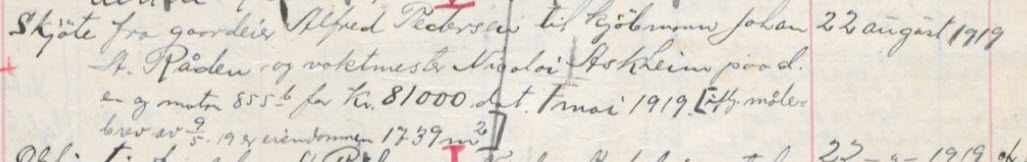 Skjöte fra gaardeier Alfred Pedersen til kjöbmann Johan 22 august 1919
St. Råden og voktmester Nicolai Askheim paa d.
en og matr. 855b for Kr. 81000. dat. 1 mai 1919. [ifg. måle-
brev av 9/5. 19 er eiendommen 1739 m2]
22 - " - 1919